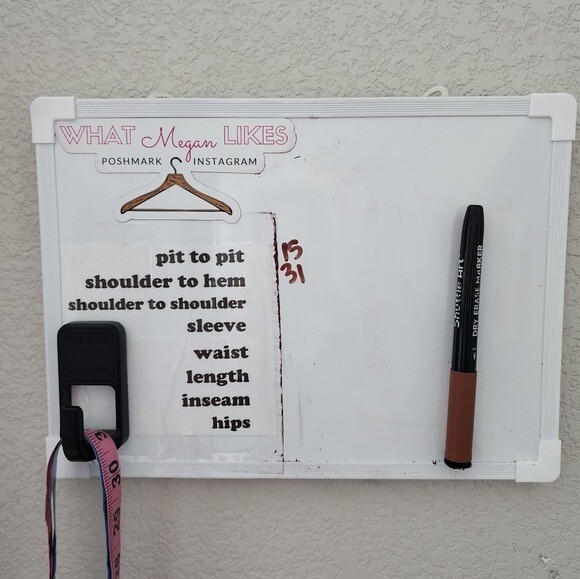 WHAT Megan LIKES
POSHMARK INSTAGRAM
pit to pit 15
shoulder to hem 31
shoulder to shoulder
sleeve
waist
length
inseam
hips
Shuttle Art
DRY ERASE MARKER
30
29